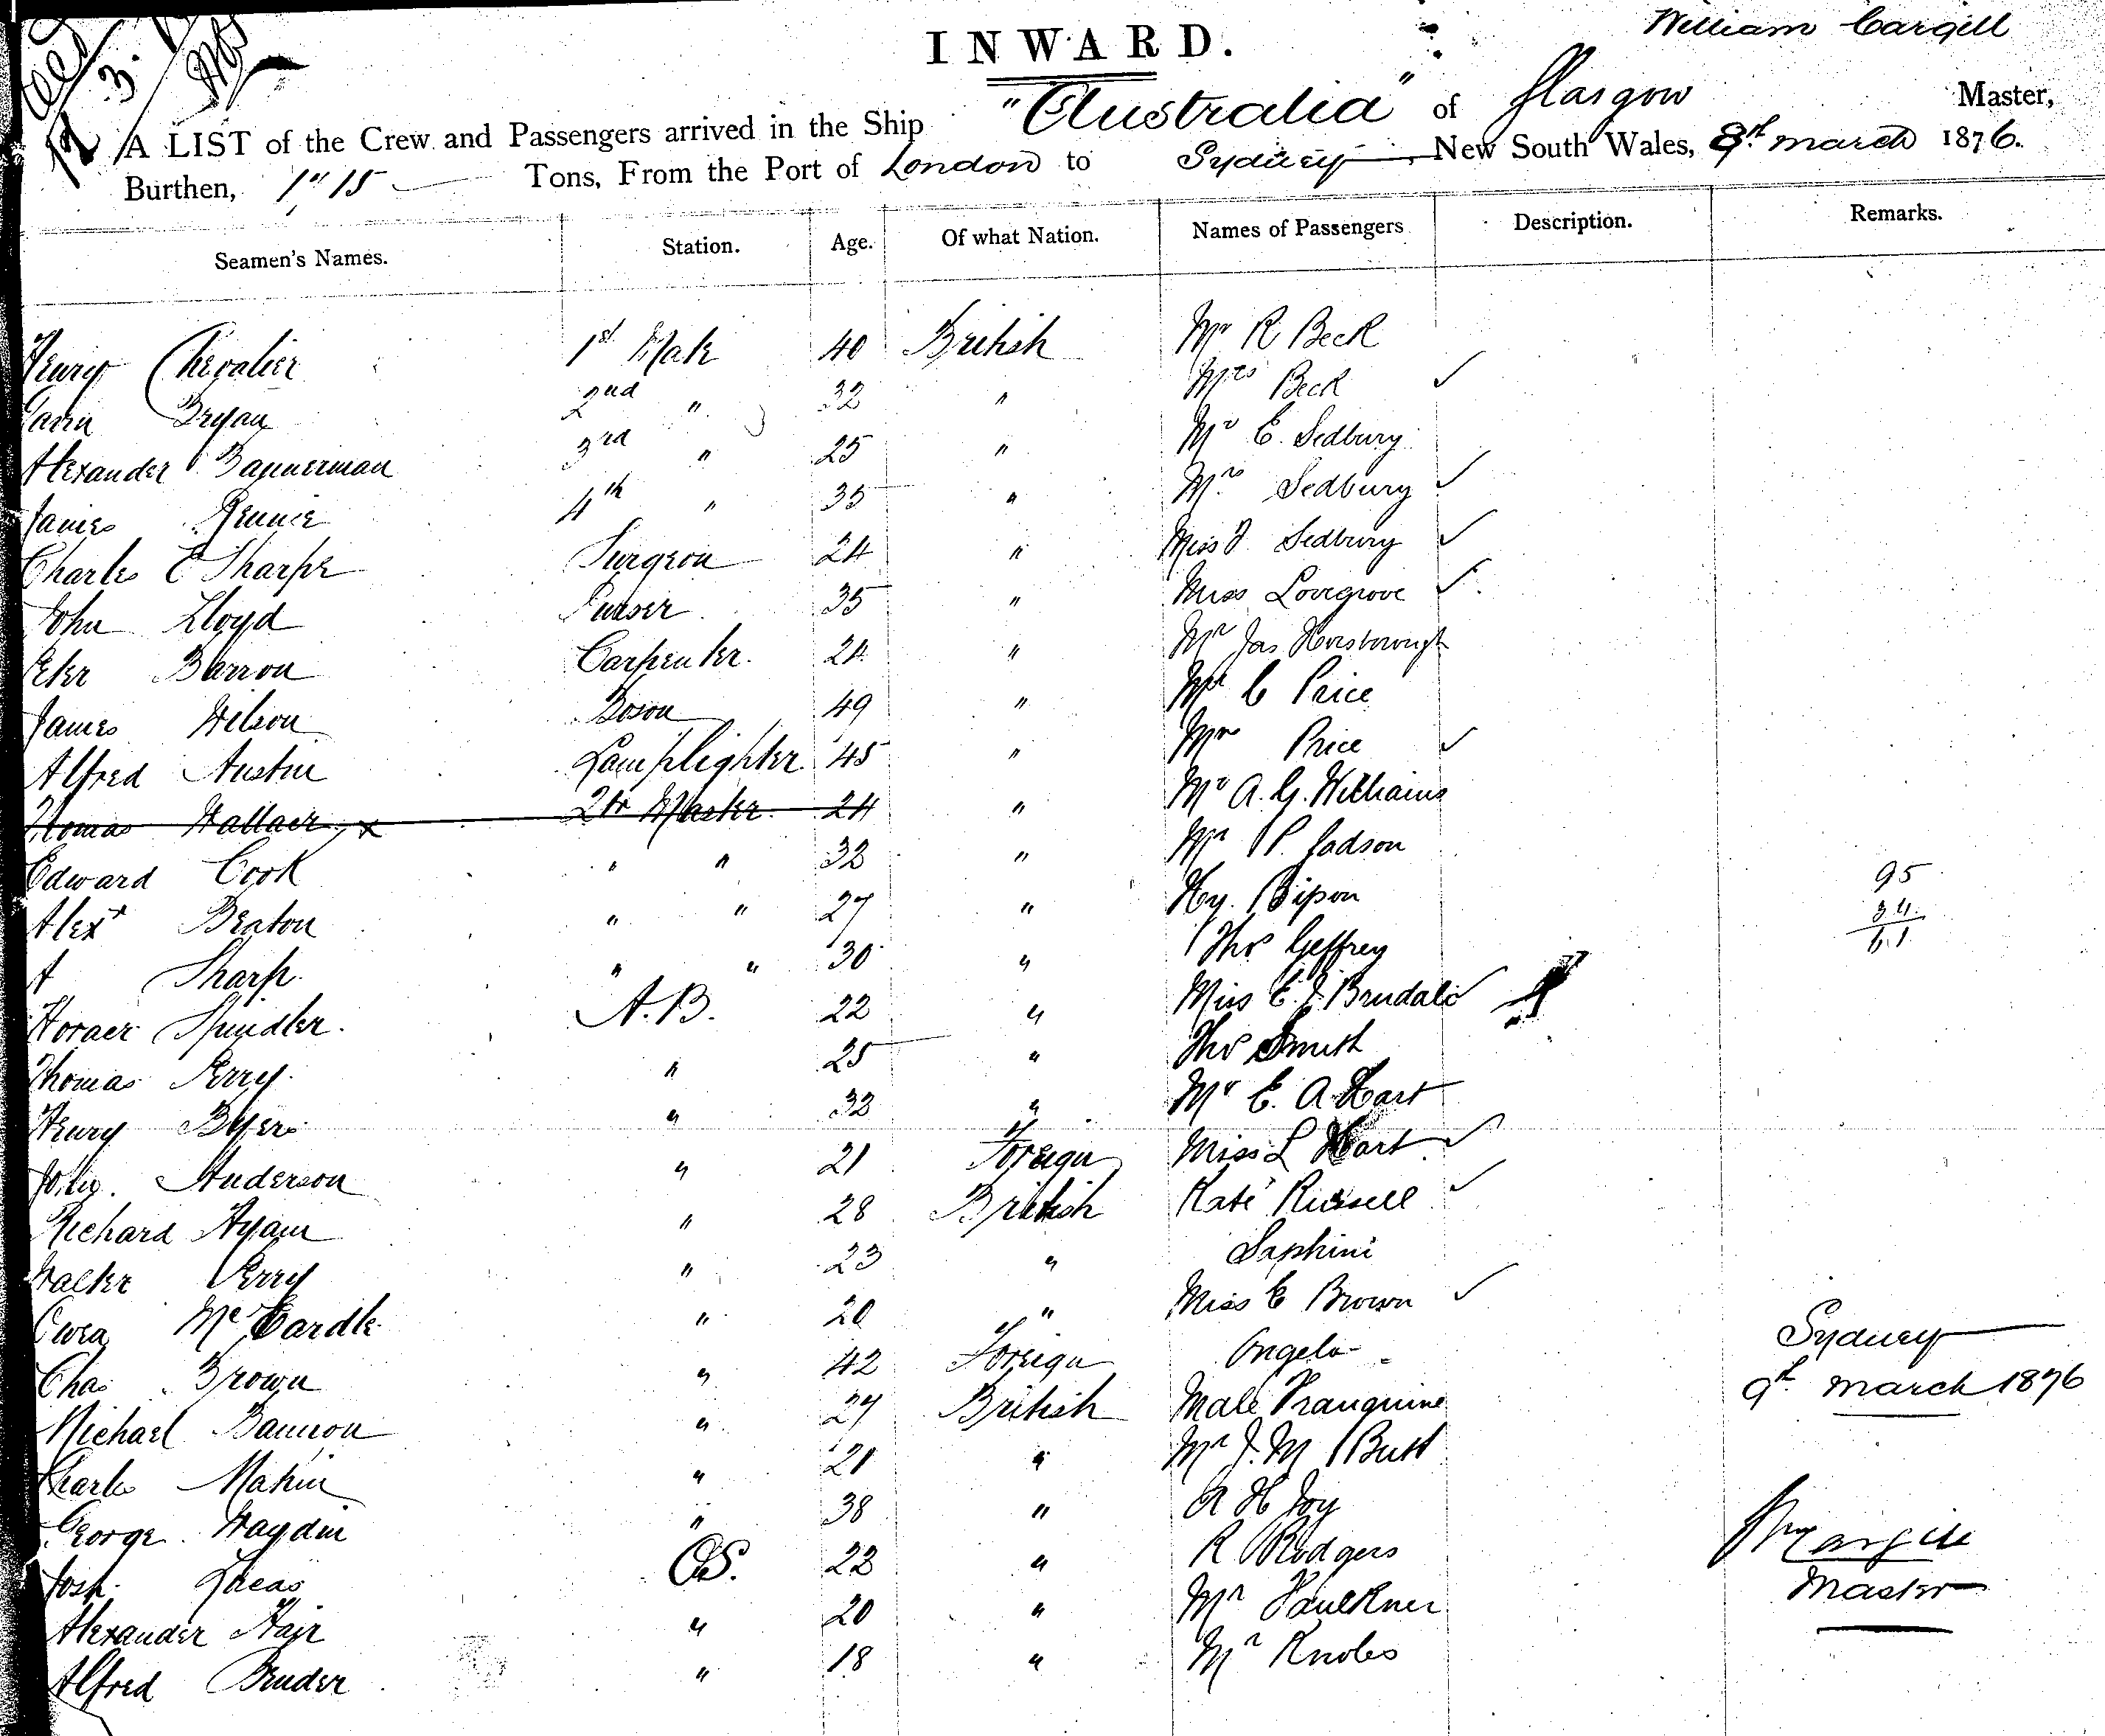 INWARD.
William Cargill
A LIST of the Crew and Passengers arrived in the Ship "Australia" of Glasgow Master,
Burthen, Tons, From the Port of London to Sydney New South Wales, March 1876.
Seamen's Names. Station. Age. Of what Nation. Names of Passengers Description. Remarks.
Henry Chevalier 1st Mate 40 British Mr R Beck
Bryan 2nd " 32 " Mrs Beck ✓
Alexander Bannerman 3rd " 25 " Mr E. Sedbury
James Rennie 4th " 35 " Mrs Sedbury ✓
Charles E Sharpe Surgeon 24 " Miss Sedbury ✓
John Lloyd Purser 35 " Miss Lovegrove ✓
Peter Barron Carpenter. 24 " Mr Jas Horsborough
James Wilson Boson 49 " Mr C Price
Alfred Austin Lamplighter 45 " Mrs Price ✓
Thomas Wallace x Qr Master 24 " Mr A. G. Williams
Edward Cook " " 32 " Mr P. Jadson
Alexr Beaton " " 27 " Hy. 95
A Sharp " " 30 " Thos Geffrey
Horace Spindler. A.B. 22 " Miss E. ✓
Thomas Perry " 25 " Thos Smith
Henry Byers " 32 " Mr E. A Hart
Anderson " 21 Foreign Miss L Hart ✓
Richard Ayam " 28 British Kate Russell ✓
Walter Perry " 23 " Saphini
Owen McCardle " 20 " Miss E Brown ✓
Chas Brown " 42 Foreign Angelo
Michael Bannon " 27 British Male
Charles Makin " 21 " Mr J. M Butt
George Haydin " 38 " A H Joy
Josh. Lucas OS. 22 " R Rodgers
Alexander Hair " 20 " Mr Faulkner
Alfred Bender " 18 " Mr Knobes
Sydney
9th March 1876
Wm Cargill
Master